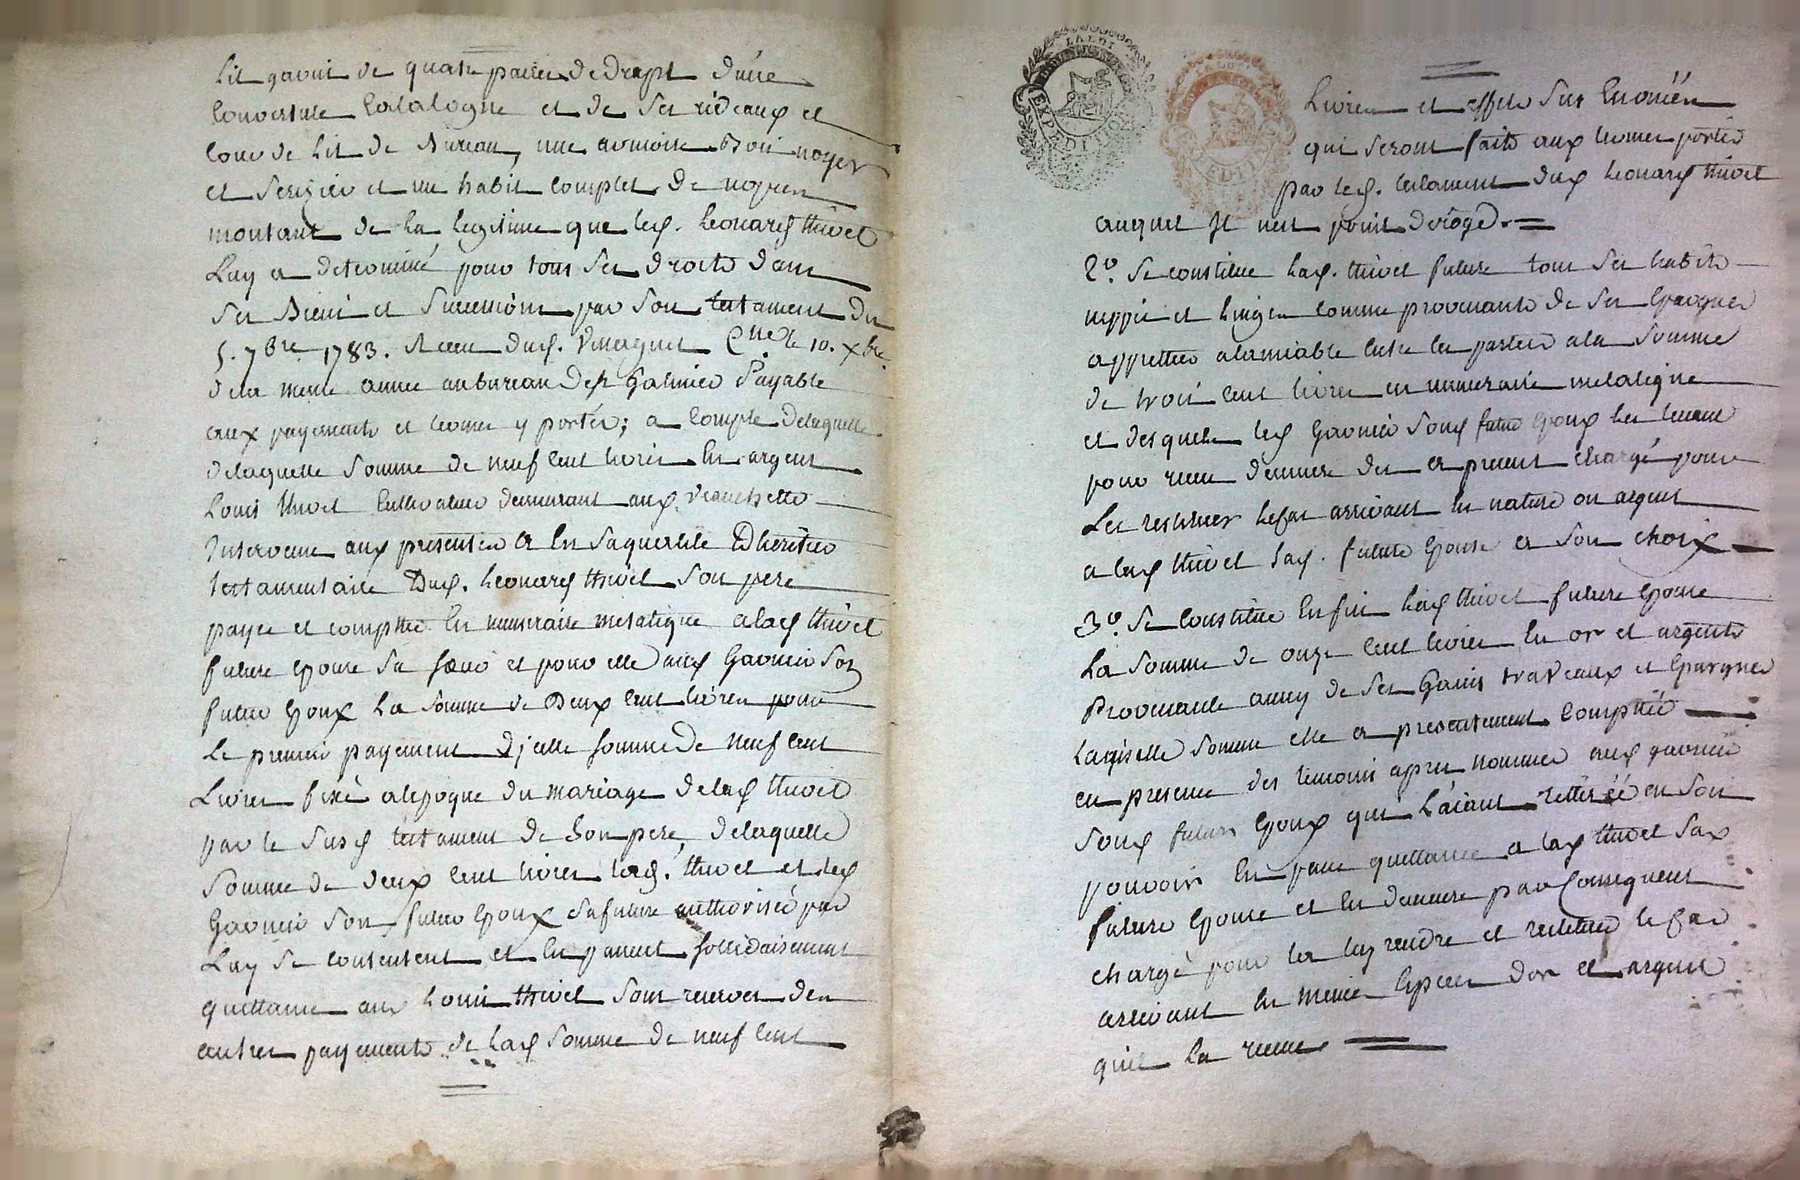 Lit, garni de quatre paires de drapt d'une
Couverture Catalogne et de ses rideaux et
tour de lit de Bureau, une armoire bois noyer
et serizier et un habit complet de noyen
montant de la legitime que led. Leonard thivel
Luy a determiné pour tous ses droits dans
ses Biens et successions par son testament du
5. 7bre 1783. Receu dud. Controllé le 10. xbre
de la meme année au bureau de Payable
aux payements et termes y portés; a compte delaquelle
delaquelle somme de neuf cent livres En argent
Louis thivel Cultivateur demeurant aux
Intervenu aux presentes et En sa qualité D'heritier
testamentaire Dud. Leonard thivel Son pere
payé et comptté En numeraire metalique a lad thivel
future Epouse sa sœur et pour elle aud Garnier son
futur Epoux La somme de Deux cent livres pour
Le premier payement d'jcelle somme de neuf cent
Livres fixé alepoque du mariage de lad thivel
par le susd testament de son pere, delaquelle
somme de deux cent livres lad. thivel et led
Garnier son futur Epoux sa future authorisée par
Luy se contentent et En passent sollidairement
quittance aud Louis thivel sous reserves des
autres payements de lad somme de neuf cent
LA LOI
EXPEDITION
Livres et effets sus Enoncés
qui seront faits aux termes portés
par led. testament dud Leonard thivel
auquel Il nest point derogé.
2º. Se constitue lad. thivel future tous ses habits
nippes et linges comme provenants de ses Epargnes
appretiés a lamiable Entre les parties a la somme
de trois cent livres en numeraire metalique
et desquels led Garnier sond futur Epoux les tenant
pour receu demeure des a present chargé pour
Les restituer le cas arrivant en nature ou argent
a lad thivel sad. future Epouse a son choix
3º. Se constitue Enfin lad thivel future Epouse
La somme de onze cent livres En or et argent
Provenante aussy de ses Gains travaux et Epargnes
Laquelle somme elle a presentement Comptté
en presence des temoins apres nommés aud Garnier
Sond futur Epoux qui L'aiant rettirée en son
pouvoir En passe quittance a lad thivel sad
future Epouse et En demeure par Consequent
chargé pour la luy rendre et restituer le cas
arrivant En meme Especes d'or et argent
qu'il La receue